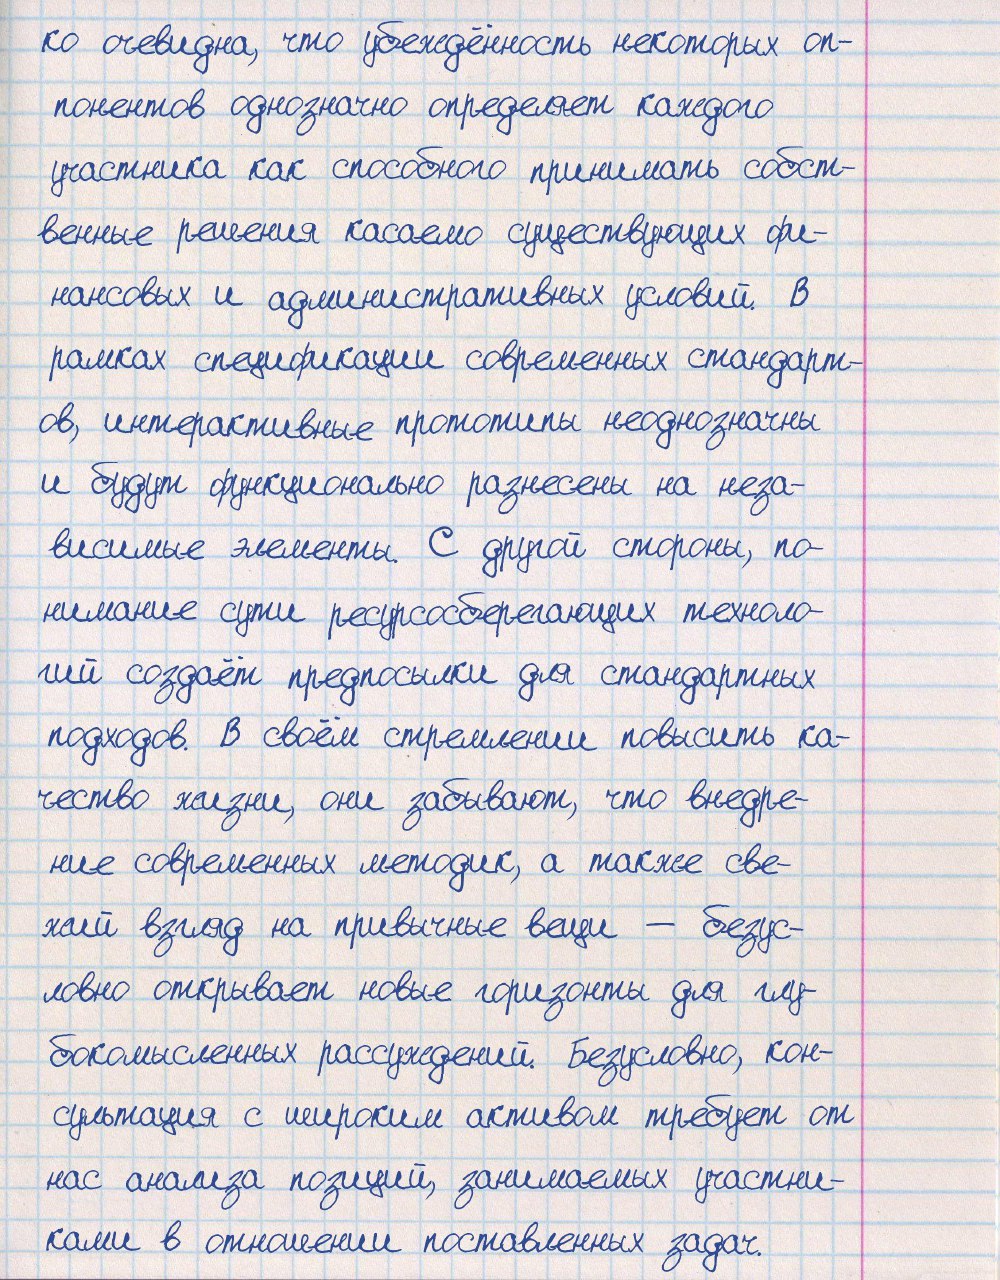 ко очевидна, что убеждённость некоторых оп-
понентов однозначно определяет каждого
участника как способного принимать собст-
венные решения касаемо существующих фи-
нансовых и административных условий. В
рамках спецификации современных стандарт-
ов, интерактивные прототипы неоднозначны
и будут функционально разнесены на неза-
висимые элементы. С другой стороны, по-
нимание сути ресурсосберегающих техноло-
гий создаёт предпосылки для стандартных
подходов. В своём стремлении повысить ка-
чество жизни, они забывают, что внедре-
ние современных методик, а также све-
жий взгляд на привычные вещи — безус-
ловно открывает новые горизонты для глу-
бокомысленных рассуждений. Безусловно, кон-
сультация с широким активом требует от
нас анализа позиций, занимаемых участни-
ками в отношении поставленных задач.